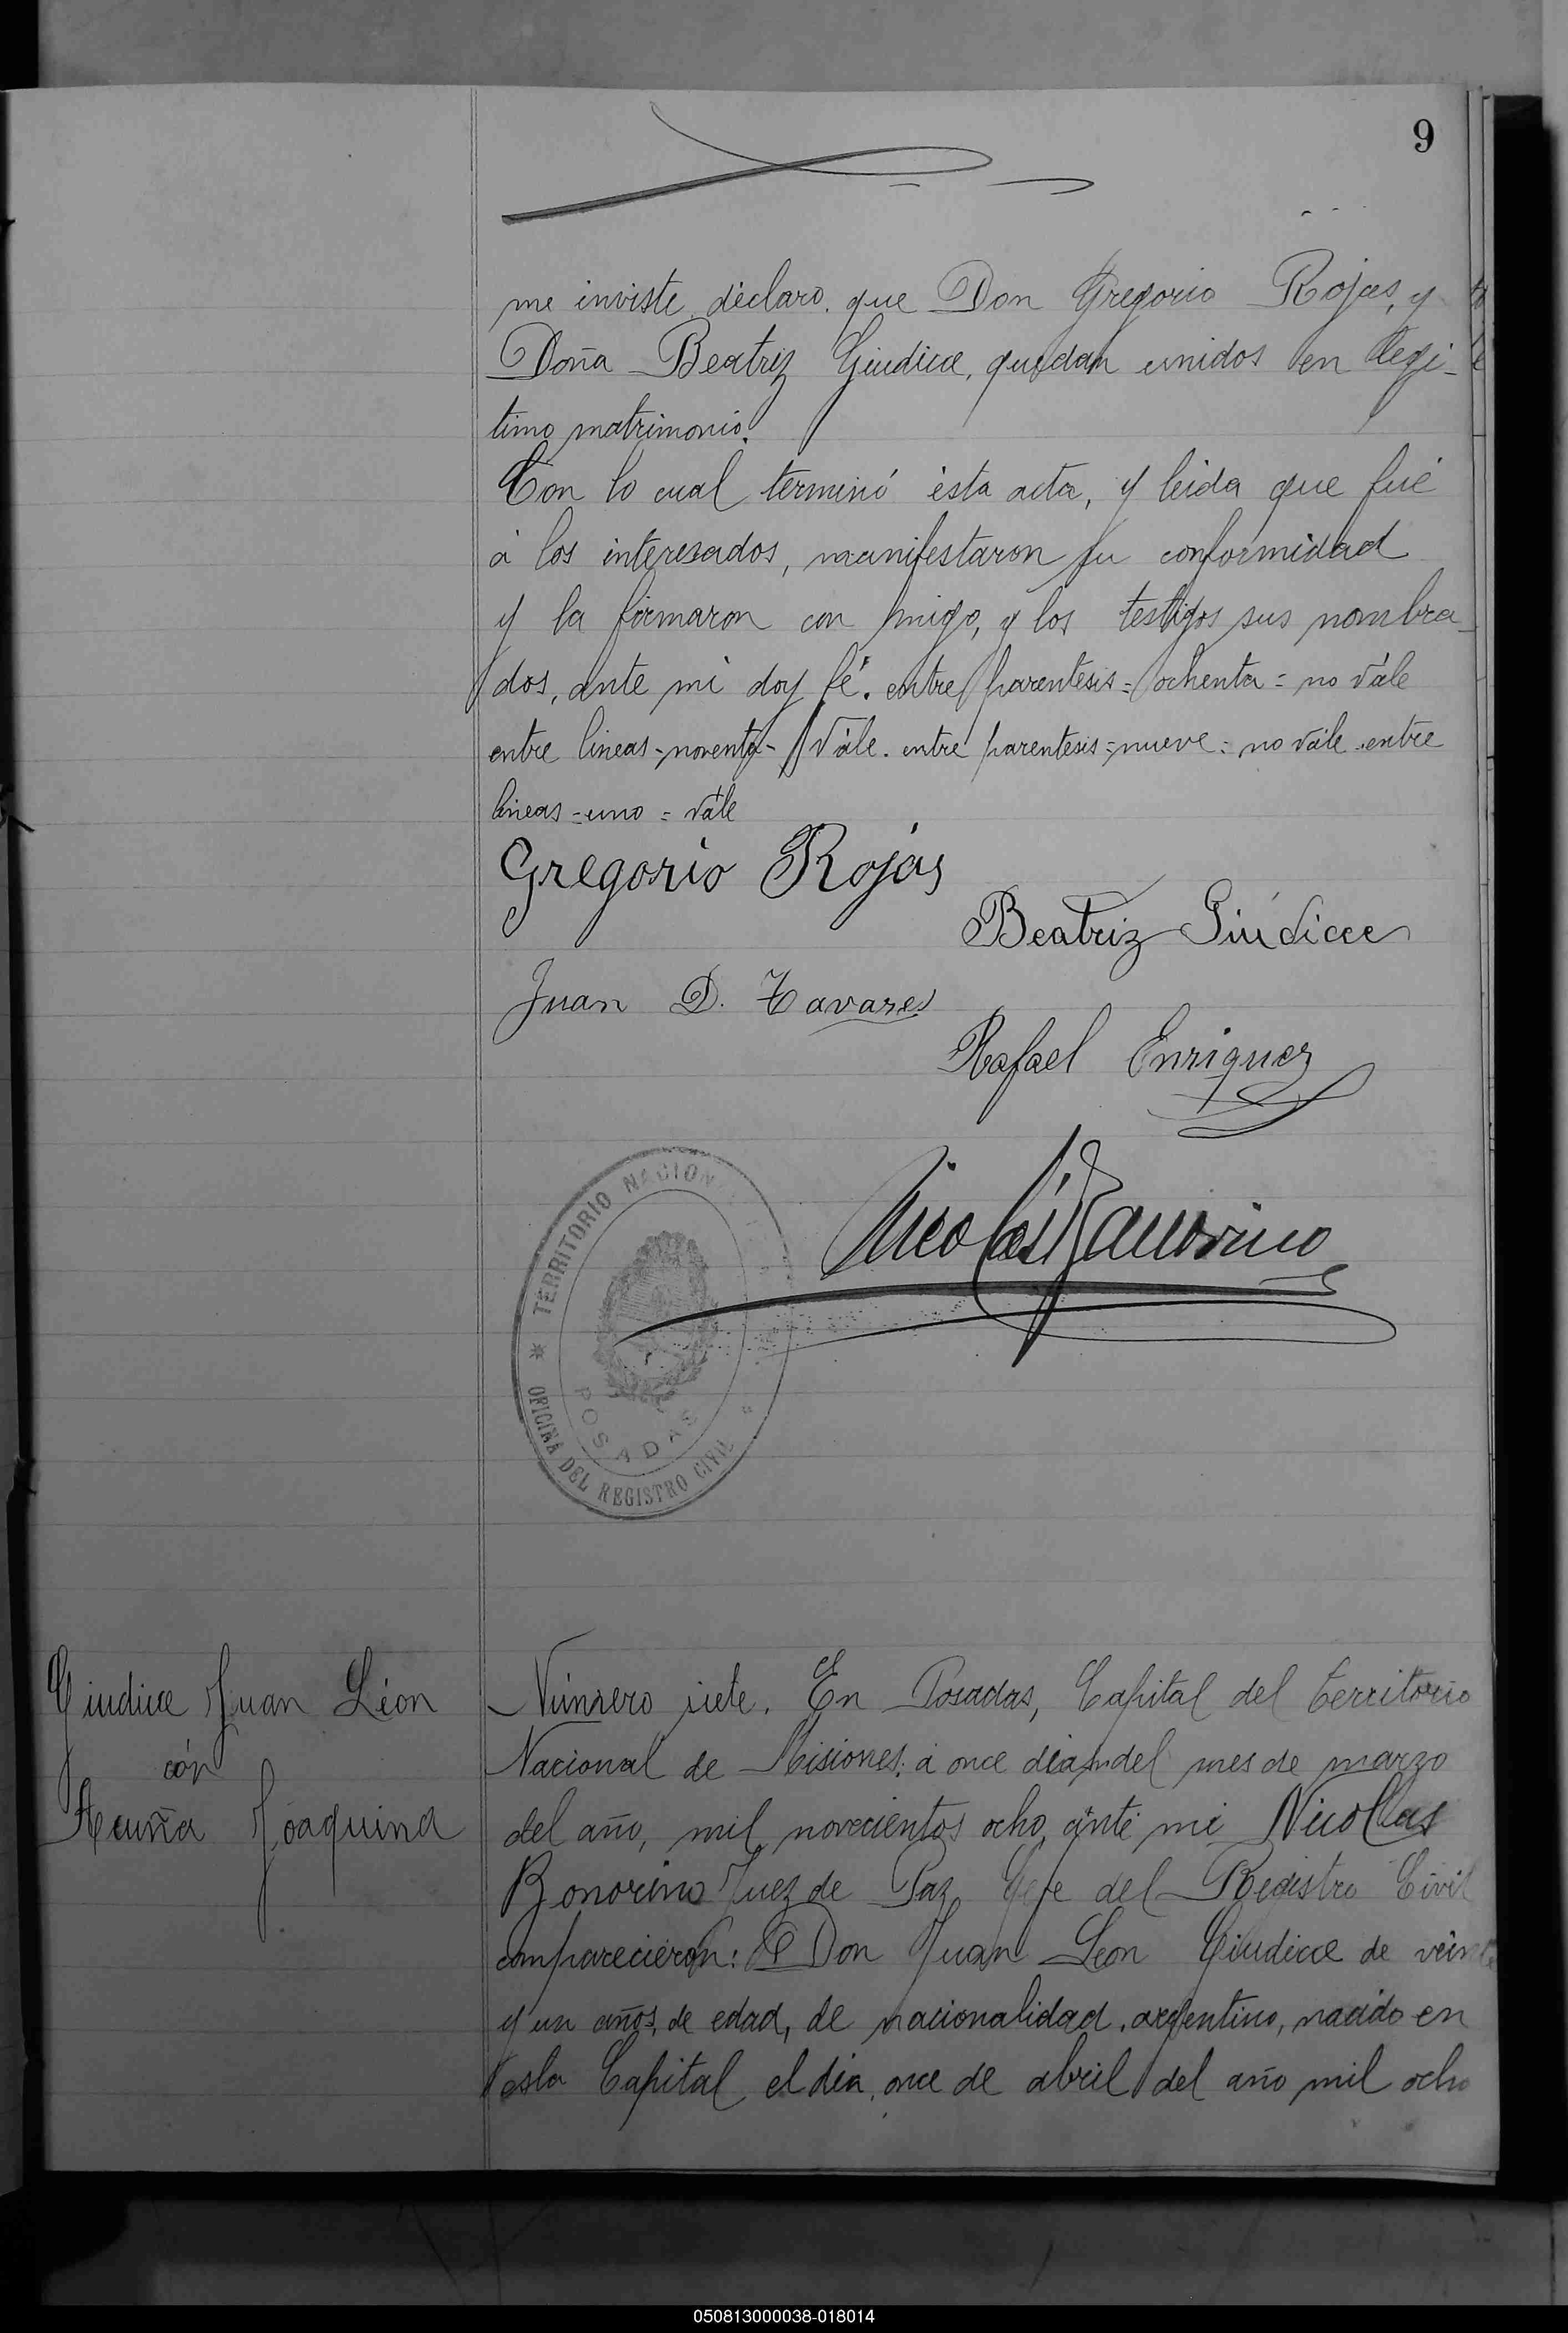 9
me inviste, declaro, que Don Gregorio Rojas, y
Doña Beatriz Giudice, quedan unidos en legi-
timo matrimonio.
Con lo cual terminó ésta acta, y leida que fué
á los interesados, manifestaron su conformidad
y la firmaron con migo, y los testigos sus nombra-
dos, ante mi doy fé. entre parentesis = ochenta = no vále
entre lineas - noventa - Vále. entre parentesis = nueve = no vále. entre
lineas = uno = vále
Gregorio Rojas
Beatriz Giúdicce
Juan D. Tavares
Rafael Enriquez
Nicolás Bonorino
TERRITORIO NACION
POSADAS
OFICINA DEL REGISTRO CIVIL
Giudice Juan Léon
cón
Acuña Joaquina
Número siete. En Posadas, Capital del territorio
Nacional de Misiones, á once dias del mes de marzo
del año, mil novecientos ocho, ánte mi Nicollas
Bonorino Juez de Paz, Gefe del Registro Civil
comparecieron: Don Juan Leon Giudice de veinte
y un años, de edad, de nacionalidad, argentino, nacido en
esta Capital, el dia, once de abril del año mil ocho
050813000038-018014